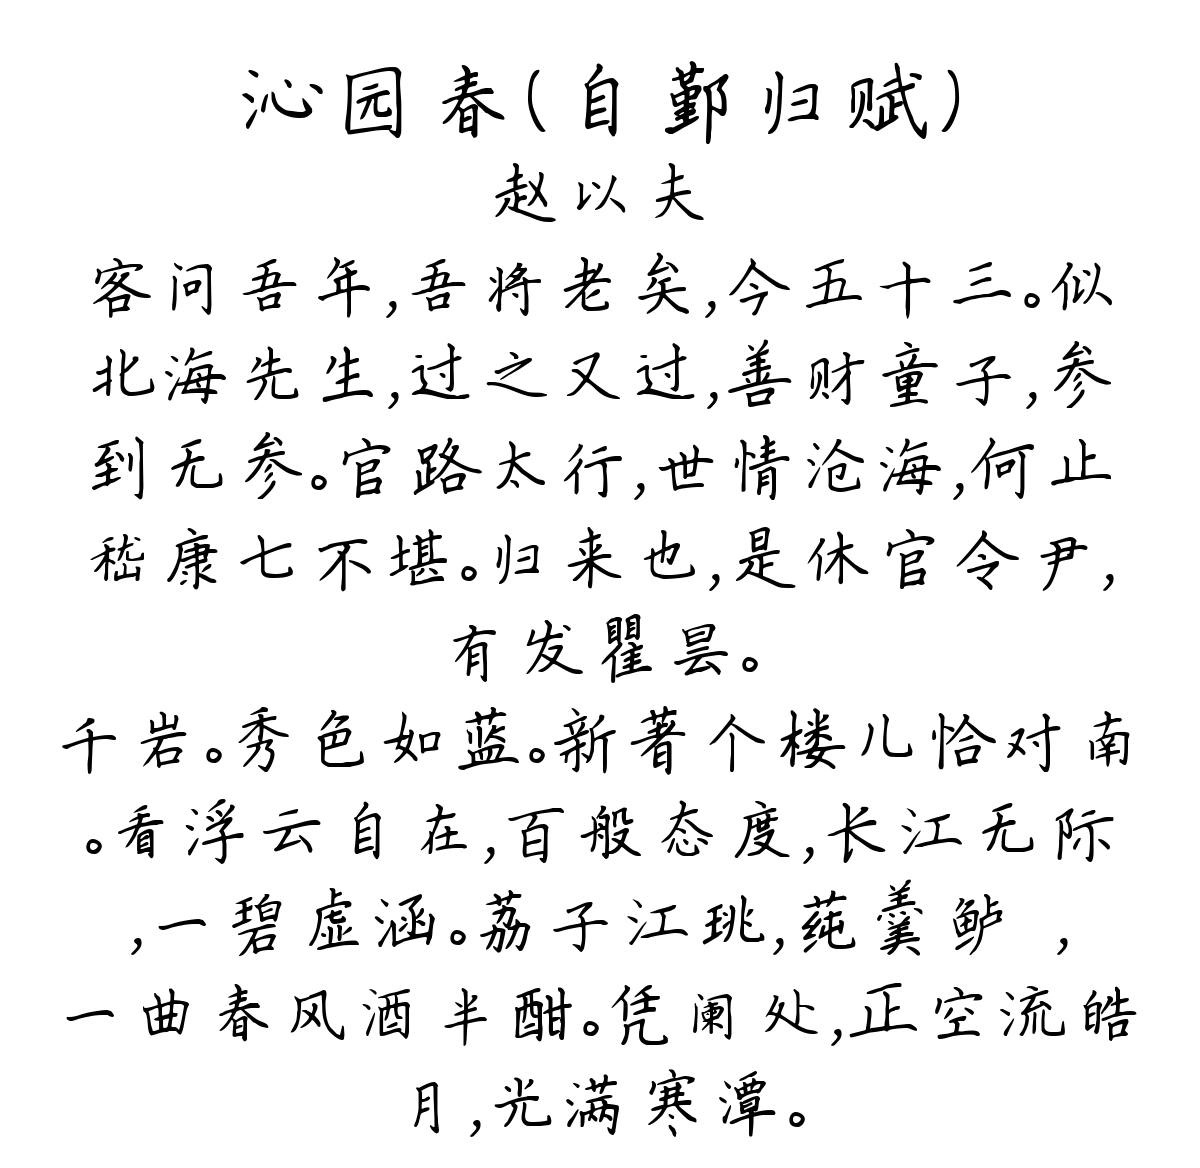 沁园春(自鄞归赋)
赵以夫
客问吾年,吾将老矣,今五十三。似
北海先生,过之又过,善财童子,参
到无参。官路太行,世情沧海,何止
嵇康七不堪。归来也,是休官令尹,
有发瞿昙。
千岩。秀色如蓝。新著个楼儿恰对南
。看浮云自在,百般态度,长江无际
,一碧虚涵。荔子江珧,莼羹鲈 ,
一曲春风酒半酣。凭阑处,正空流皓
月,光满寒潭。